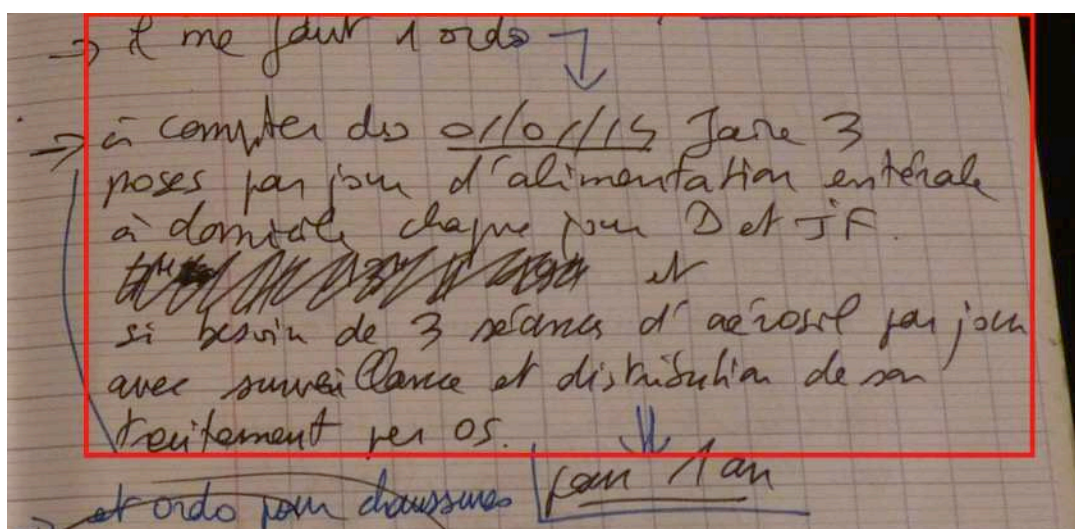 → il me faut 1 ordo
→ à compter du 01/01/15 Faire 3
poses par jour d'alimentation entérale
à domicile chaque jour D et JF.
et
si besoin de 3 séances d'aérosol par jour
avec surveillance et distribution de son
traitement per os.
pour 1 an
→ et ordo pour chaussures